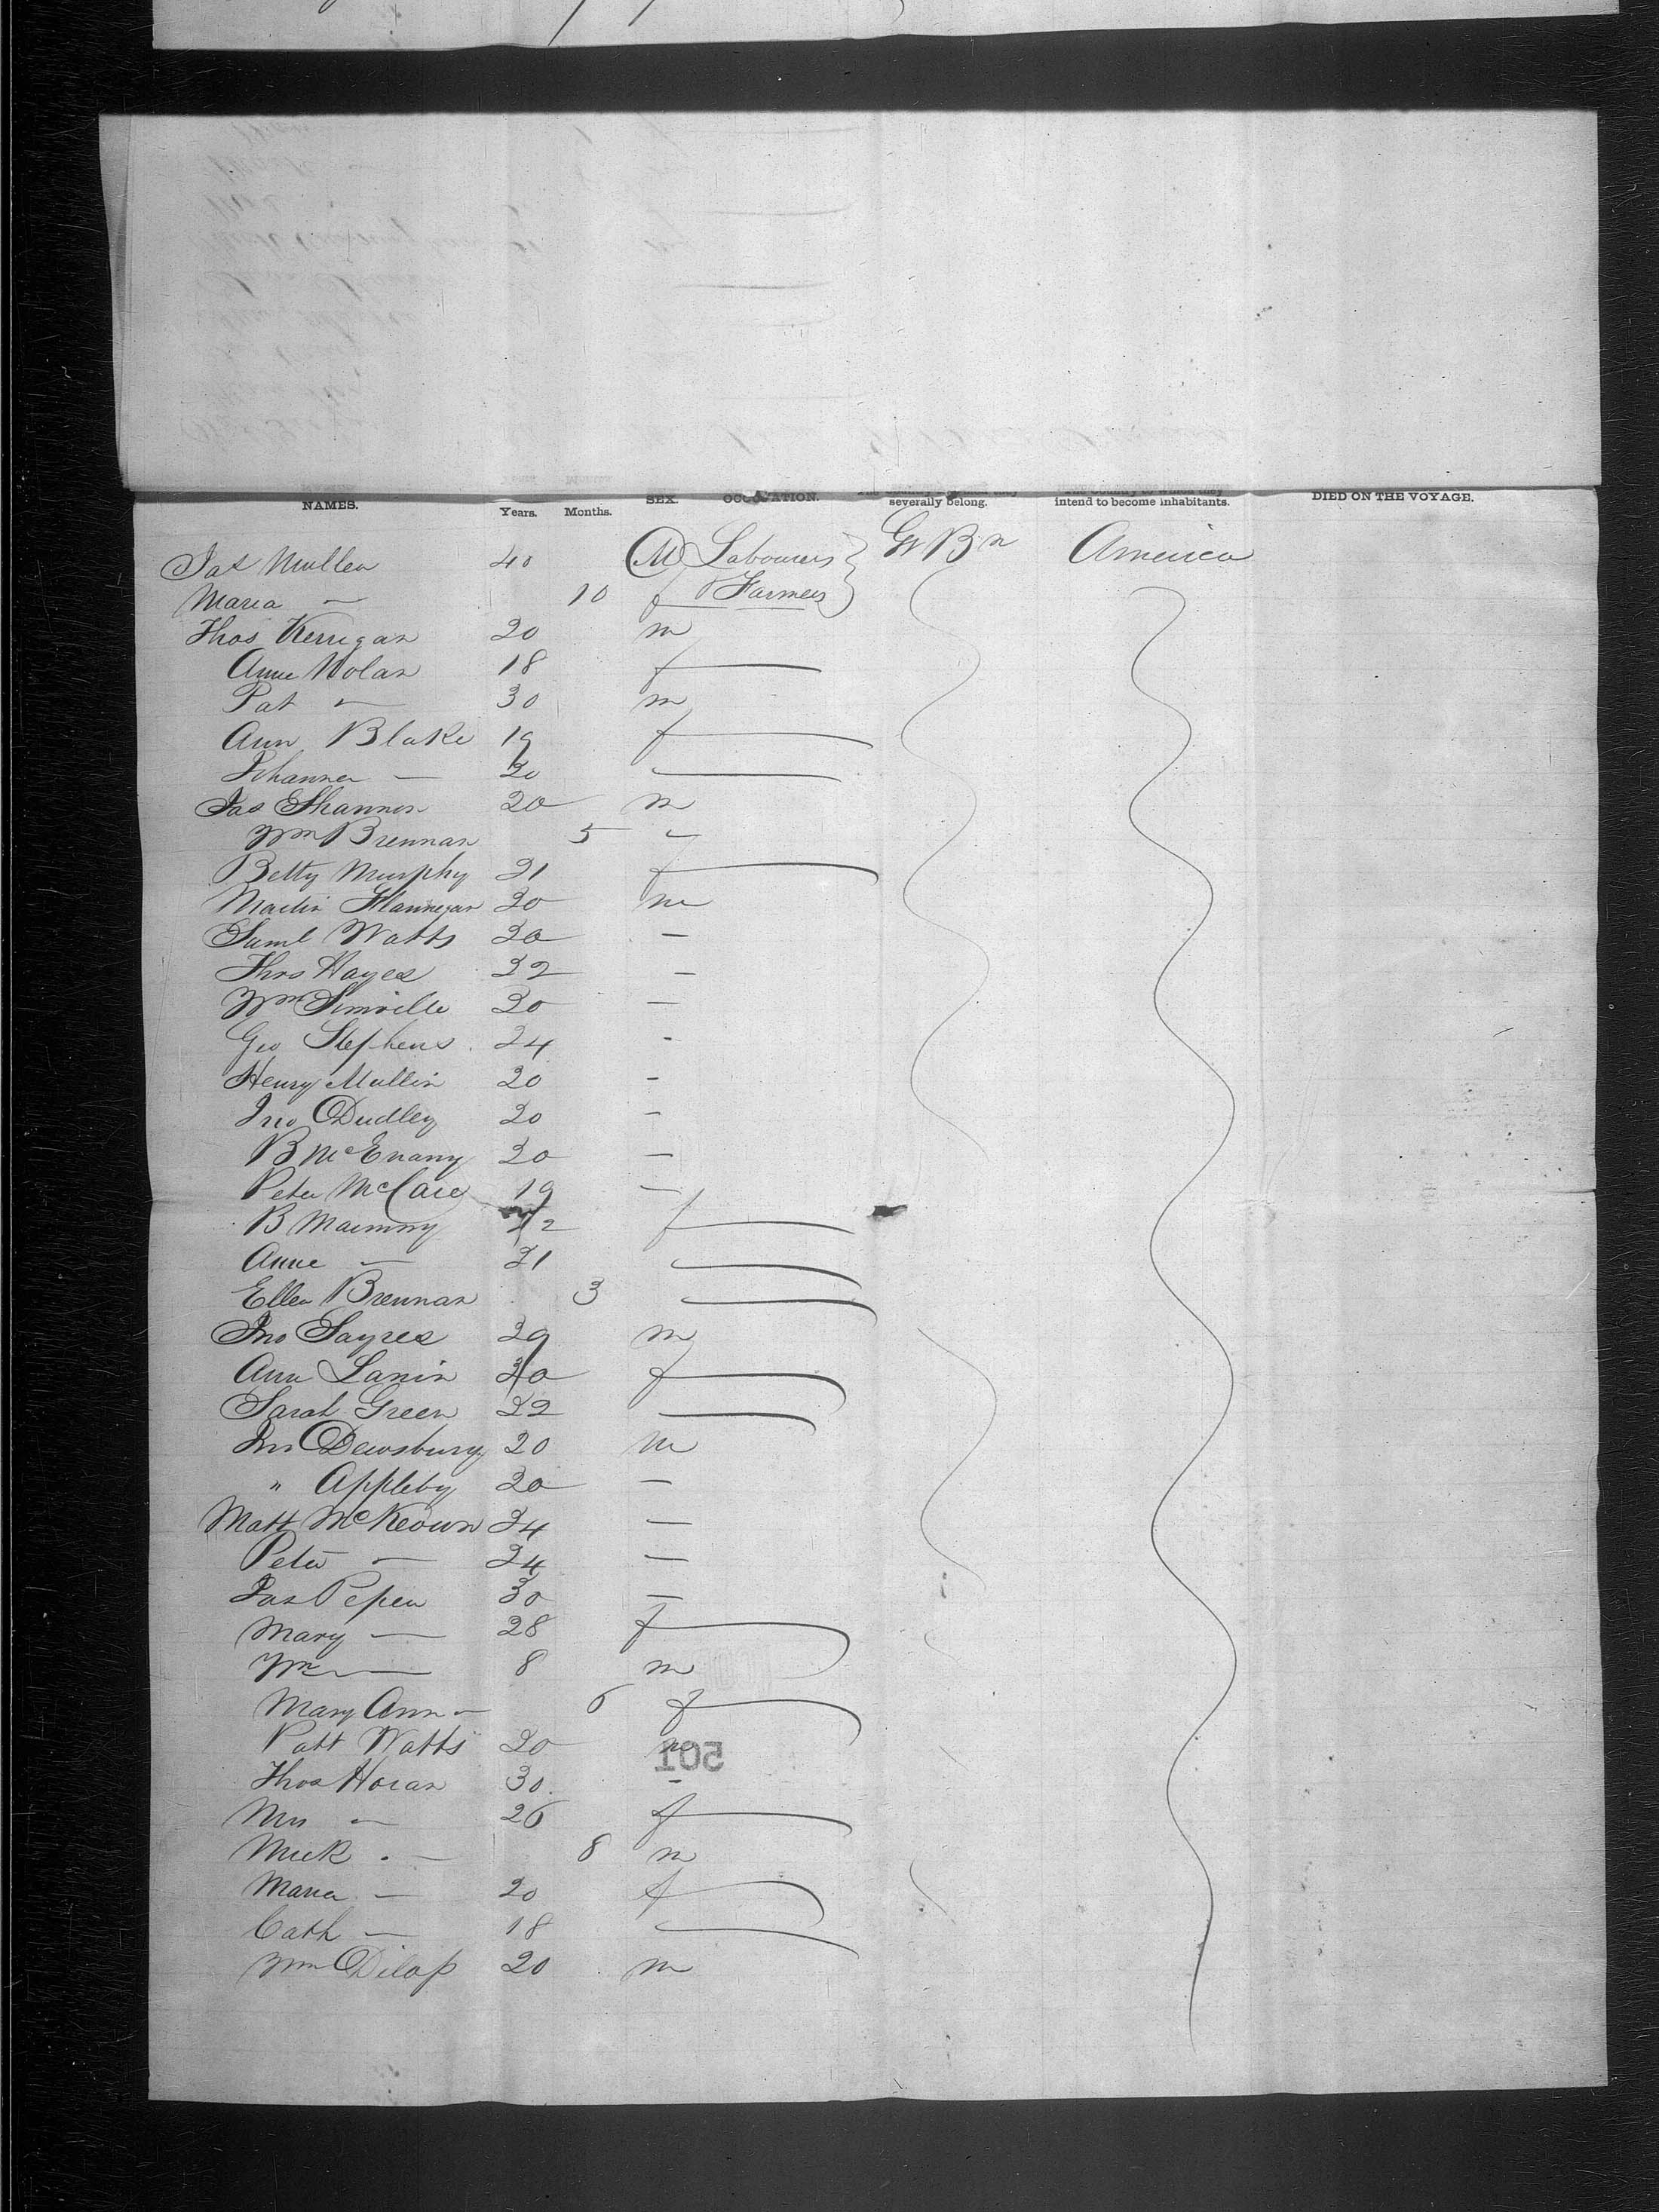 NAMES. Years. Months. SEX. OCCUPATION. severally belong. intend to become inhabitants. DIED ON THE VOYAGE.
Jas Mullen 40 M Labourers Gt Bn America
Maria — 10 f & Farmers
Thos Kerrigan 20 m
Anne Nolan 18 f
Pat — 30 m
Ann Blake 19 f
Johanna — 20
Jas Shannon 20 m
Wm Brennan 5 –
Betty Murphy 21 f
Martin Flannegan 20 m
Saml Watts 20 —
Thos Hayes 22 —
Wm 20 —
Geo Stephens 24 -
Henry Mullin 20 -
Jno Dudley 20 -
B McEnany 20 —
Peter 19 —
B f
Anne — 21
Ellen Brennan 3
Jno Sayres 29 m
Ann Lanin 20 f
Sarah Green 22
Jno Dewsbury 20 m
" Appleby 20 —
Matt McKeown 24 —
Peter — 24 —
Jas Pepen 30 —
Mary — 28 f
Wm — 8 m
Mary Ann — 6 f
Patt Watts 20 m
501
Thos Horan 30 -
Mrs — 26 f
Mick — 8 m
Maria — 20 f
Cath — 18
Wm Dilap 20 m